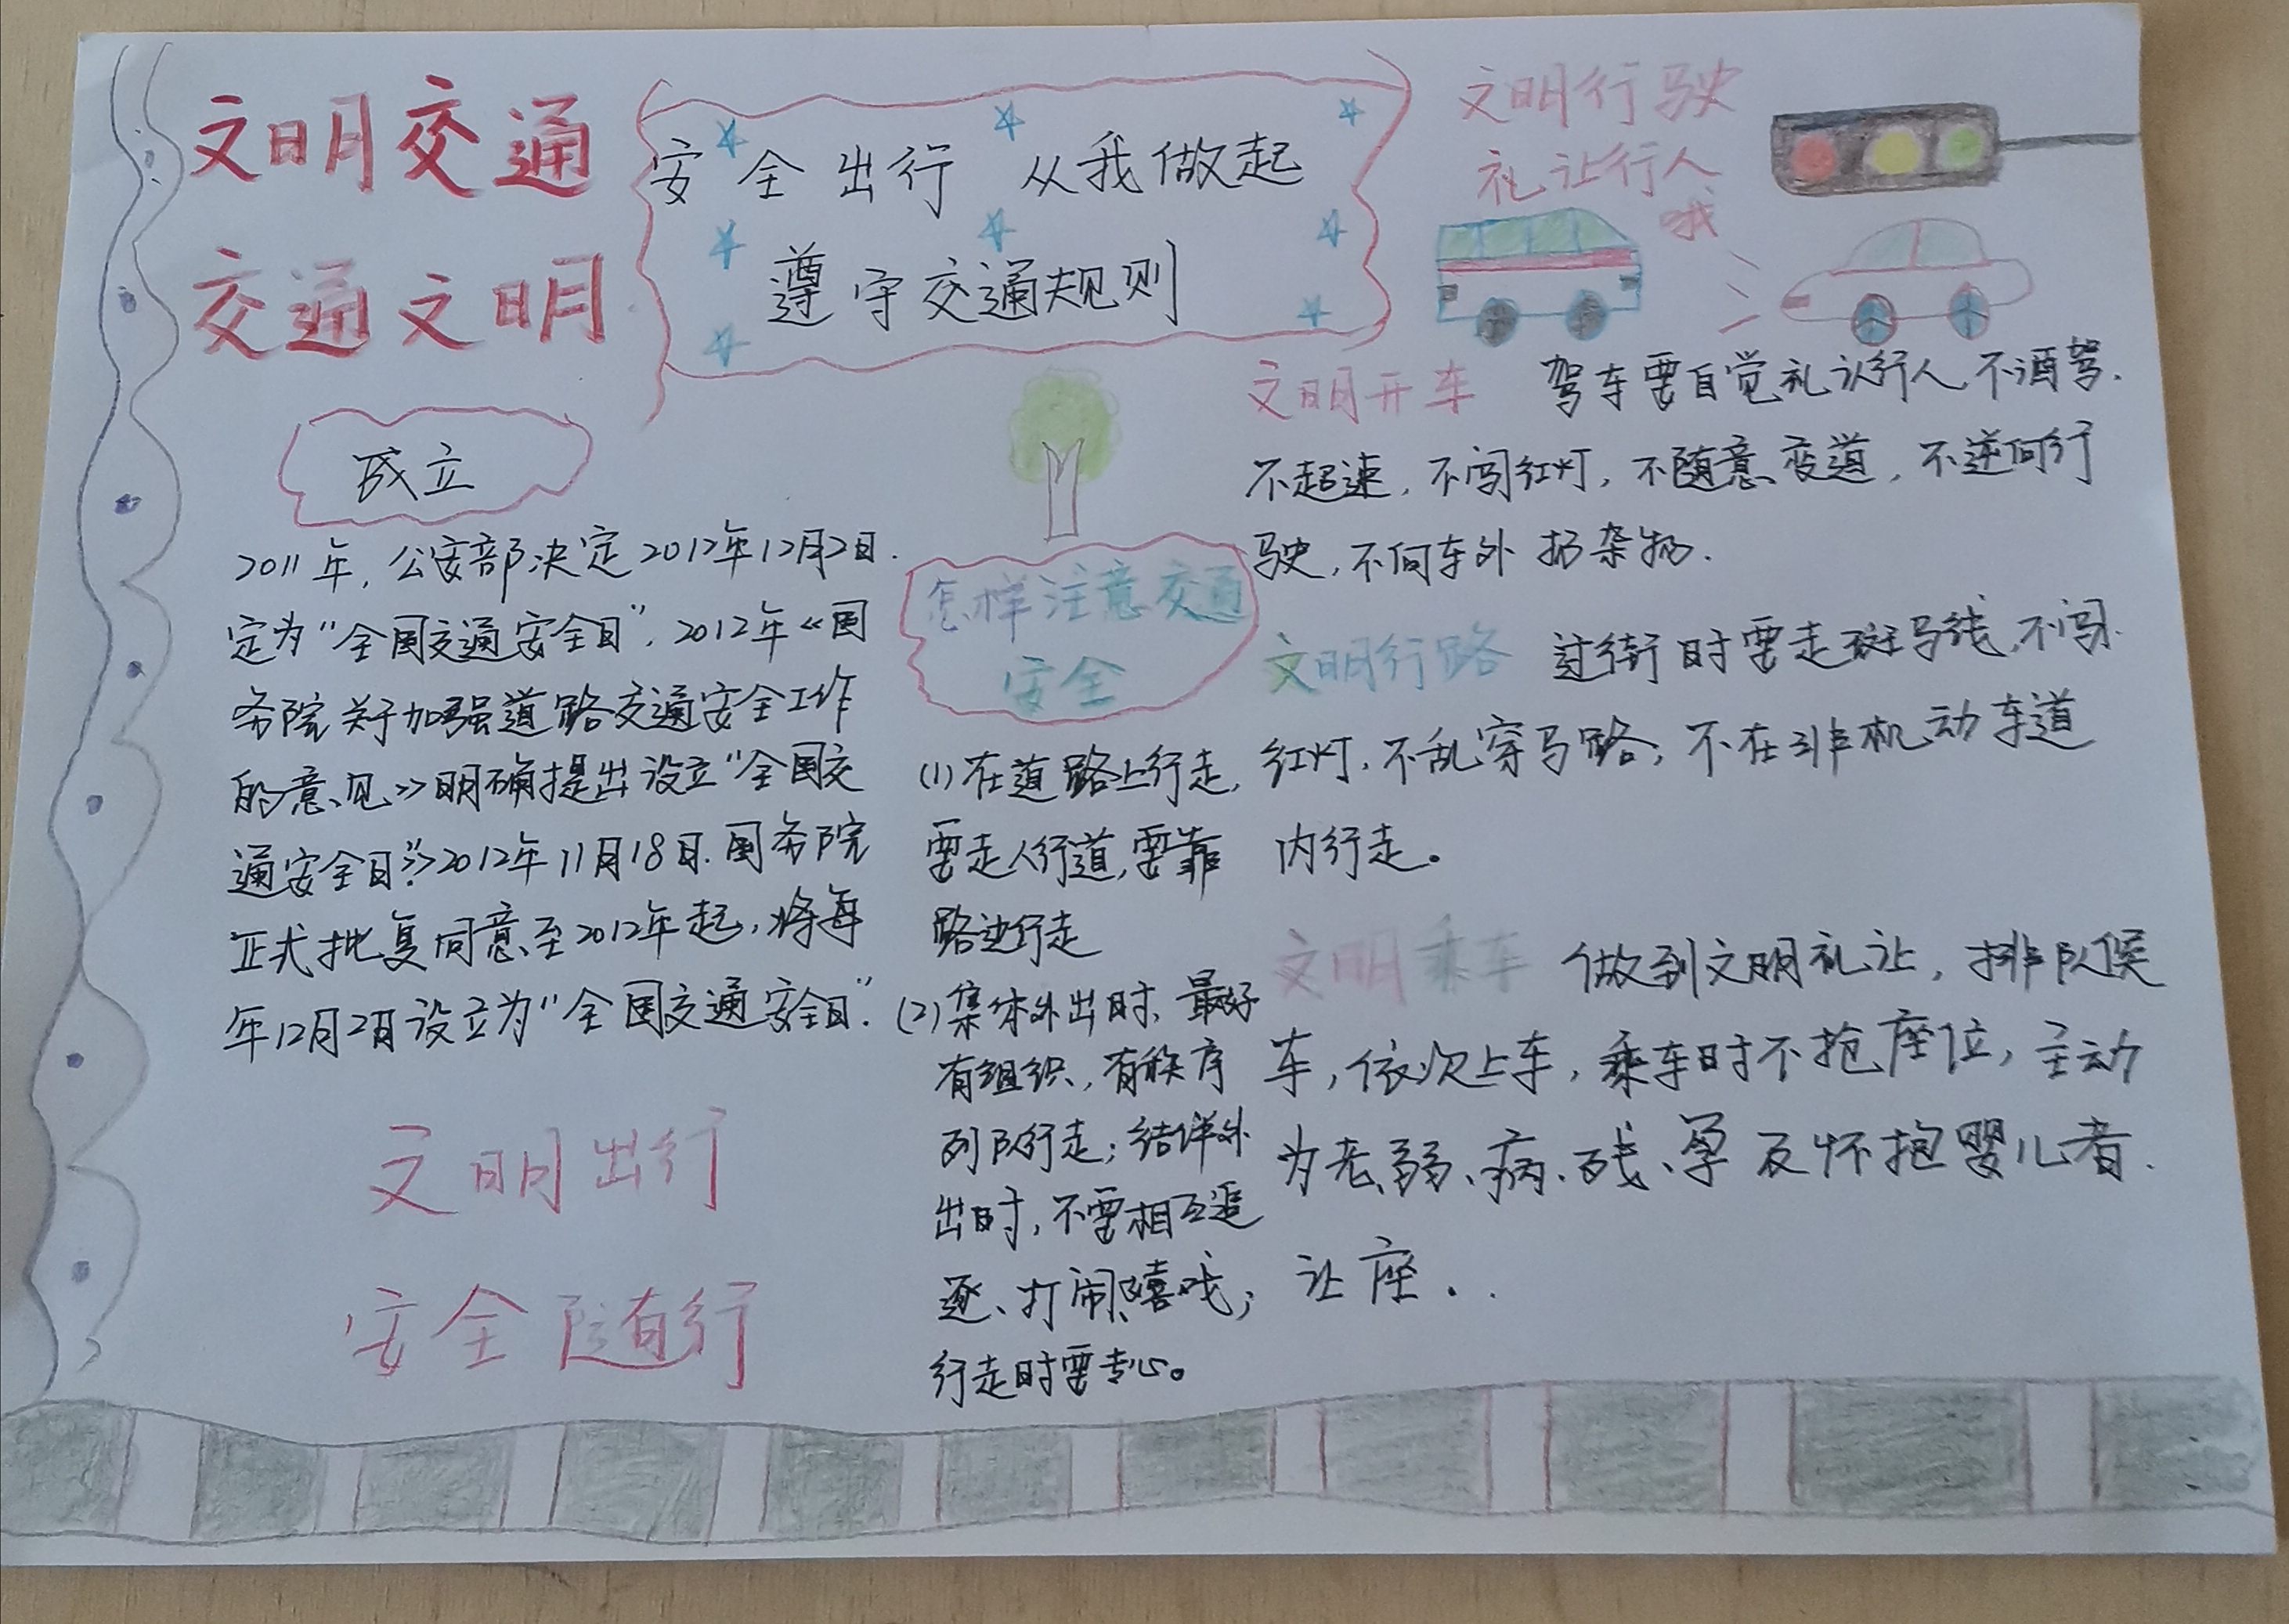 文明交通
交通文明
安全出行 从我做起
遵守交通规则
文明行驶
礼让行人
哦
成立
2011年，公安部决定2012年12月2日.
定为“全国交通安全日”，2012年《国
务院关于加强道路交通安全工作
的意见》明确提出设立“全国交
通安全日”》2012年11月18日.国务院
正式批复同意至2012年起，将每
年12月2日设立为“全国交通安全日”.
文明出行
安全随行
怎样注意交通
安全
(1)在道路上行走，
要走人行道,要靠
路边行走
(2)集体外出时、最好
有组织，有秩序
列队行走；结伴外
出时，不要相互追
逐、打闹、嘻戏；
行走时要专心。
文明开车 驾车要自觉礼让行人,不酒驾.
不超速，不闯红灯，不随意变道，不逆向行
驶，不向车外扔杂物.
文明行路 过街时要走斑马线,不闯
红灯，不乱穿马路；不在非机动车道
内行走。
文明乘车 做到文明礼让，排队候
车，依次上车，乘车时不抢座位，主动
为老、弱、病、残、孕及怀抱婴儿者.
让座..